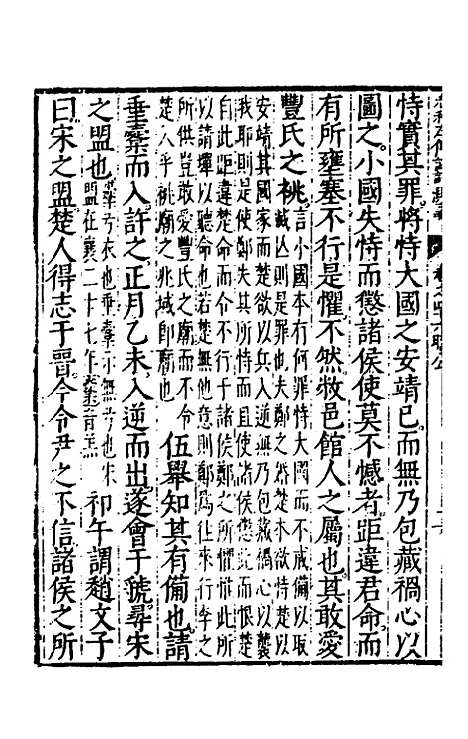 恃實其罪將恃大國之安靖已而無乃包藏禍心以
圖之小國失恃而懲諸侯使莫不憾者距違君命而
有所壅塞不行是懼不然敝邑館人之屬也其敢愛
豐氏之祧言小國本有何罪恃大國而不戒備以取
滅亡則是罪也夫鄭之然楚本欲恃楚以
安靖其國家而楚欲以兵入逆無乃包藏禍心以襲
我耶則是使鄭失其所恃而且使諸侯懲而恨楚
自此距違楚命而令不行于諸侯鄭之所懼惟此所
以請墠以聽命也若無他意則鄭為往來行李之
所供豈敢愛豐氏之廟而不令
楚人乎祧廟之兆域即廟也伍舉知其有備也請
垂櫜而入許之正月乙未入逆而出遂會于虢尋宋
之盟也櫜弓衣也垂櫜示無弓也宋
盟在襄二十七年櫜音羔祁午謂趙文子
曰宋之盟楚人得志于晉今令尹之不信諸侯之所